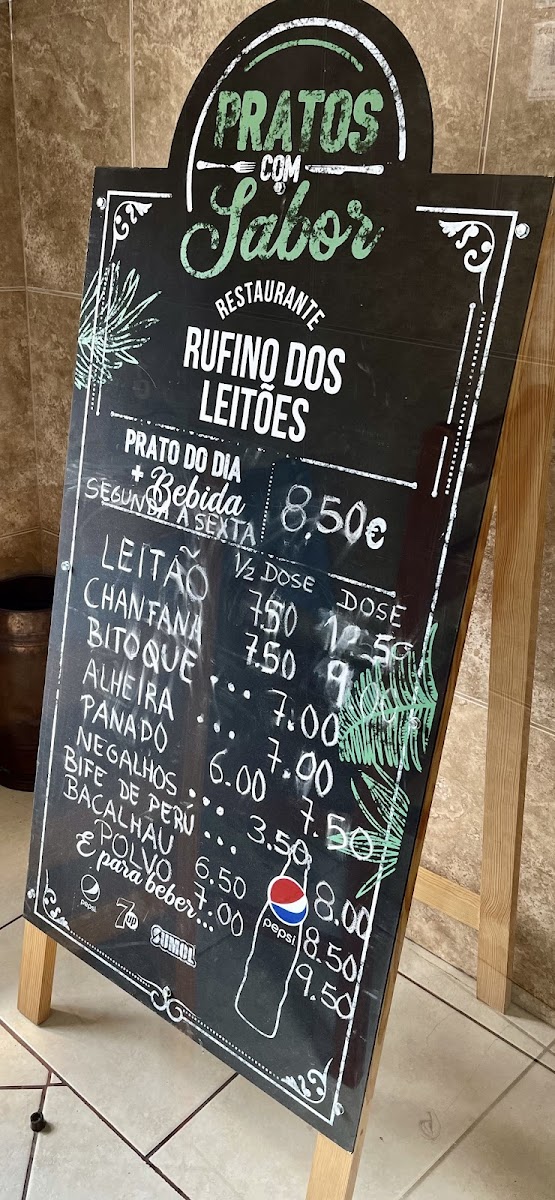 PRATOS
COM
Sabor
RESTAURANTE
RUFINO DOS
LEITÕES
PRATO DO DIA
+ Bebida
SEGUNDA A SEXTA
8,50€
1/2 DOSE DOSE
LEITÃO 7.50 12.50
CHANFANA 7.50 9.00
BITOQUE ... 7.00
ALHEIRA ... 7.00
PANADO 6.00 7.50
NEGALHOS ... 3.50
BIFE DE PERU ... 8.00
BACALHAU 6.50 8.50
POLVO 7.00 9.50
E para beber...
pepsi
7up
SUMOL
pepsi